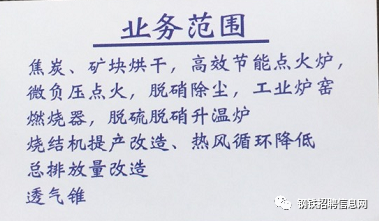 业务范围
焦炭、矿块烘干，高效节能点火炉，
微负压点火，脱硝除尘，工业炉窑
燃烧器，脱硫脱硝升温炉
烧结机提产改造、热风循环降低
总排放量改造
透气锥
钢铁招聘信息网